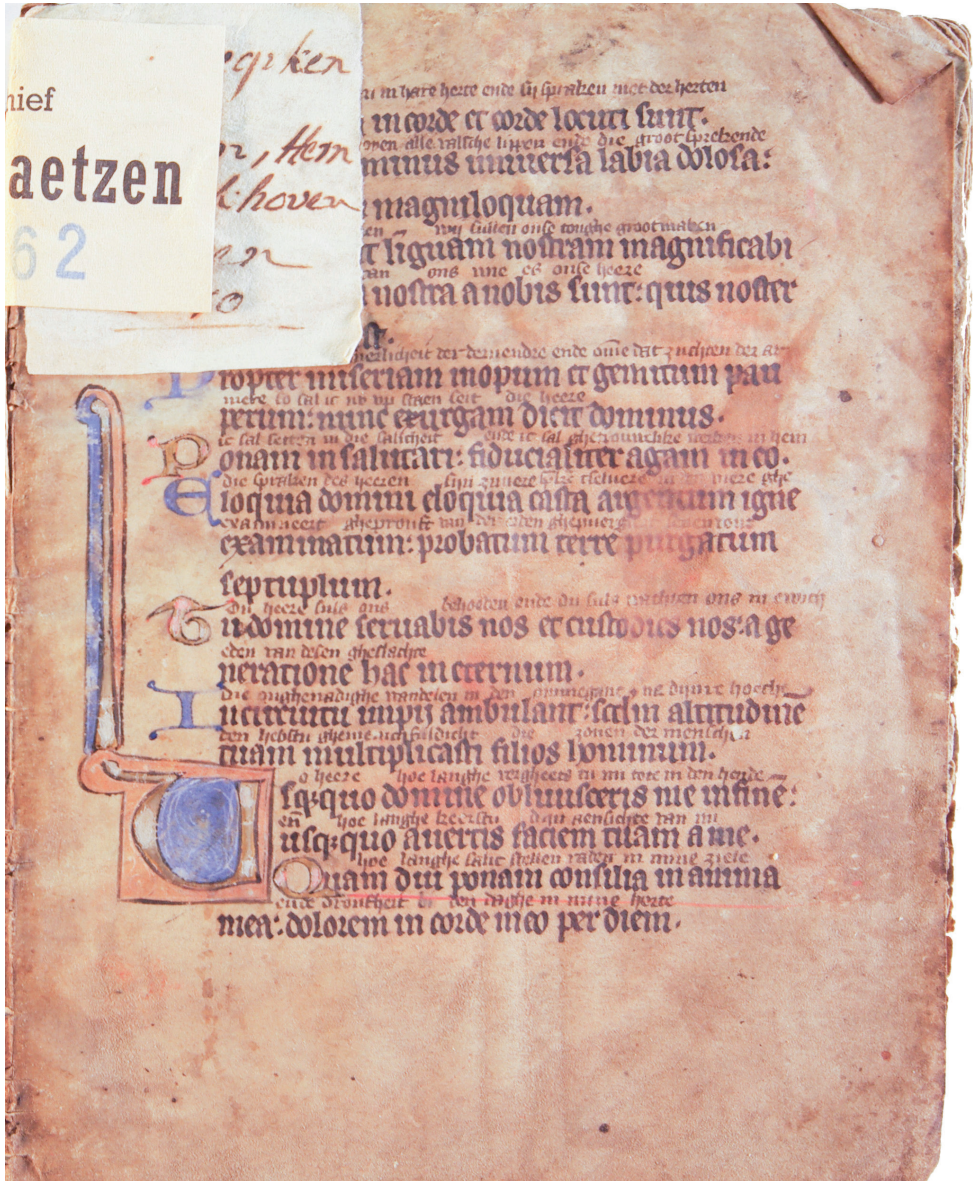 eqrken
hief
n, Hem
aetzen
khoven
62
en
in hare herte ende si spraken met der herten
in corde et corde locuti sunt.
alle valsche lippen ende die groot sprekende
minus universa labia dolosa:
magniloquam.
wij sullen onse tonghe grootmaken
t liguam nostram magnificabi
ons wie es onse heere
nostra a nobis sunt: quis noster
st.
der ende ome dat zuchten der ar
Propter miseriam inopum et gemitum pau
mere so sal ic nv vp staen seit die heere
perum: nunc exurgam dicit dominus.
ic sal setten in die salicheit ende ic sal in hem
Ponam in salutari: fiducialiter agam in eo.
die spraken des heeren sijn zuvere viere ghe
Eloquia domini eloquia casta argentum igne
examineert gheprouft van der erden
examinatum: probatum terre purgatum
septuplum.
Du heere suls ons behoeden ende du suls wachten ons in ewich
Tu domine servabis nos et custodies nos: a ge
eden van desen gheslachte
neratione hac in eternum.
die onghenadighe wandelen in den na dijnre hoechede
In circuitu impij ambulant: scdm altitudine
die zonen der menschen
tuam multiplicasti filios hominum.
o heere hoe langhe vergheets tu mi tote in den hende
Usqquo domine oblivisceris me in fine:
hoe langhe keerstu dijn aensichte van mi
usqquo avertis faciem tuam a me.
hoe langhe salic stellen raden in mine ziele
Quam diu ponam consilia in anima
ende droufheit bi den daghe in mine herte
mea: dolorem in corde meo per diem.